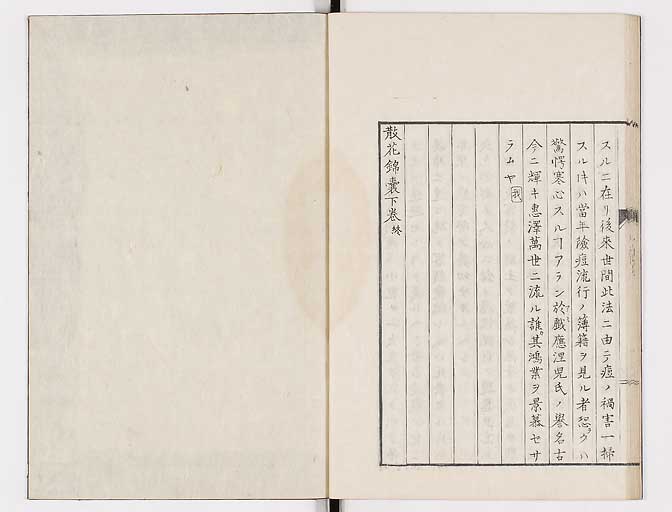 スルニ在リ後來世間此法ニ由テ痘ノ禍害一掃
スルキハ當年險痘流行ノ簿籍ヲ見ル者恐クハ
驚愕寒心スルヿアラン於戯應涅児氏ノ譽名古
今ニ輝キ惠澤萬世ニ流ル誰其鴻業ヲ景慕セサ
ラムヤ 我
散花錦囊下卷 終